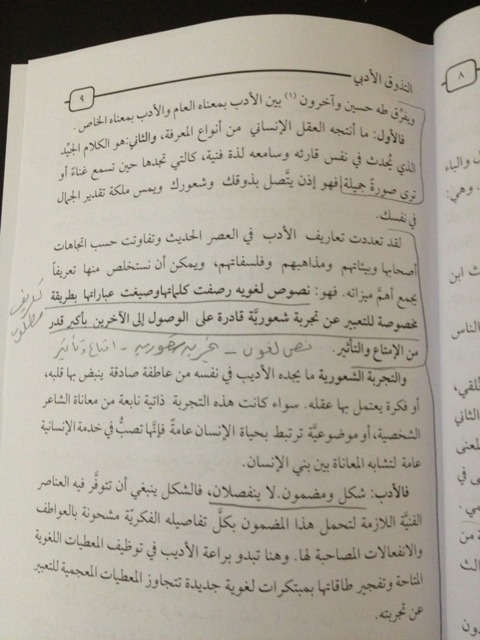 التذوق الأدبي
٩
ويفرّق طه حسين وآخرون (١) بين الأدب بمعناه العام والأدب بمعناه الخاص .
فالأول: ما أنتجه العقل الإنساني من أنواع المعرفة، والثاني: هو الكلام الجيّد
الذي يُحدث في نفس قارئه وسامعه لذة فنية، كالتي تجدها حين تسمع غناءً أو
ترى صورةً جميلة فهو إذن يتَّصل بذوقك وشعورك ويمس ملكة تقدير الجمال
في نفسك.
لقد تعددت تعاريف الأدب في العصر الحديث وتفاوتت حسب اتجاهات
أصحابها وبيئاتهم ومذاهبهم وفلسفاتهم، ويمكن أن نستخلص منها تعريفاً
يجمع أهمَّ ميزاته. فهو: نصوص لغويه رصفت كلماتها وصيغت عباراتها بطريقة
مخصوصة للتعبير عن تجربة شعوريَّة قادرة على الوصول إلى الآخرين بأكبر قدر
من الإمتاع والتأثير.
والتجربة الشعورية ما يجده الأديب في نفسه من عاطفة صادقة ينبض بها قلبه،
أو فكرة يعتمل بها عقله. سواء كانت هذه التجربة ذاتية نابعة من معاناة الشاعر
الشخصية، أو موضوعيَّة ترتبط بحياة الإنسان عامةً فإنَّها تصبُّ في خدمة الإنسانية
عامة لتشابه المعاناة بين بني الإنسان.
فالأدب: شكل ومضمون لا ينفصلان، فالشكل ينبغي أن تتوفَّر فيه العناصر
الفنيَّة اللازمة لتحمل هذا المضمون بكلِّ تفاصيله الفكريَّة مشحونة بالعواطف
والانفعالات المصاحبة لها. وهنا تبدو براعة الأديب في توظيف المعطيات اللغوية
المتاحة وتفجير طاقاتها بمبتكرات لغوية جديدة تتجاوز المعطيات المعجمية للتعبير
عن تجربته.
٨
والباء
وهي:
ث ابن
الناس
الثاني